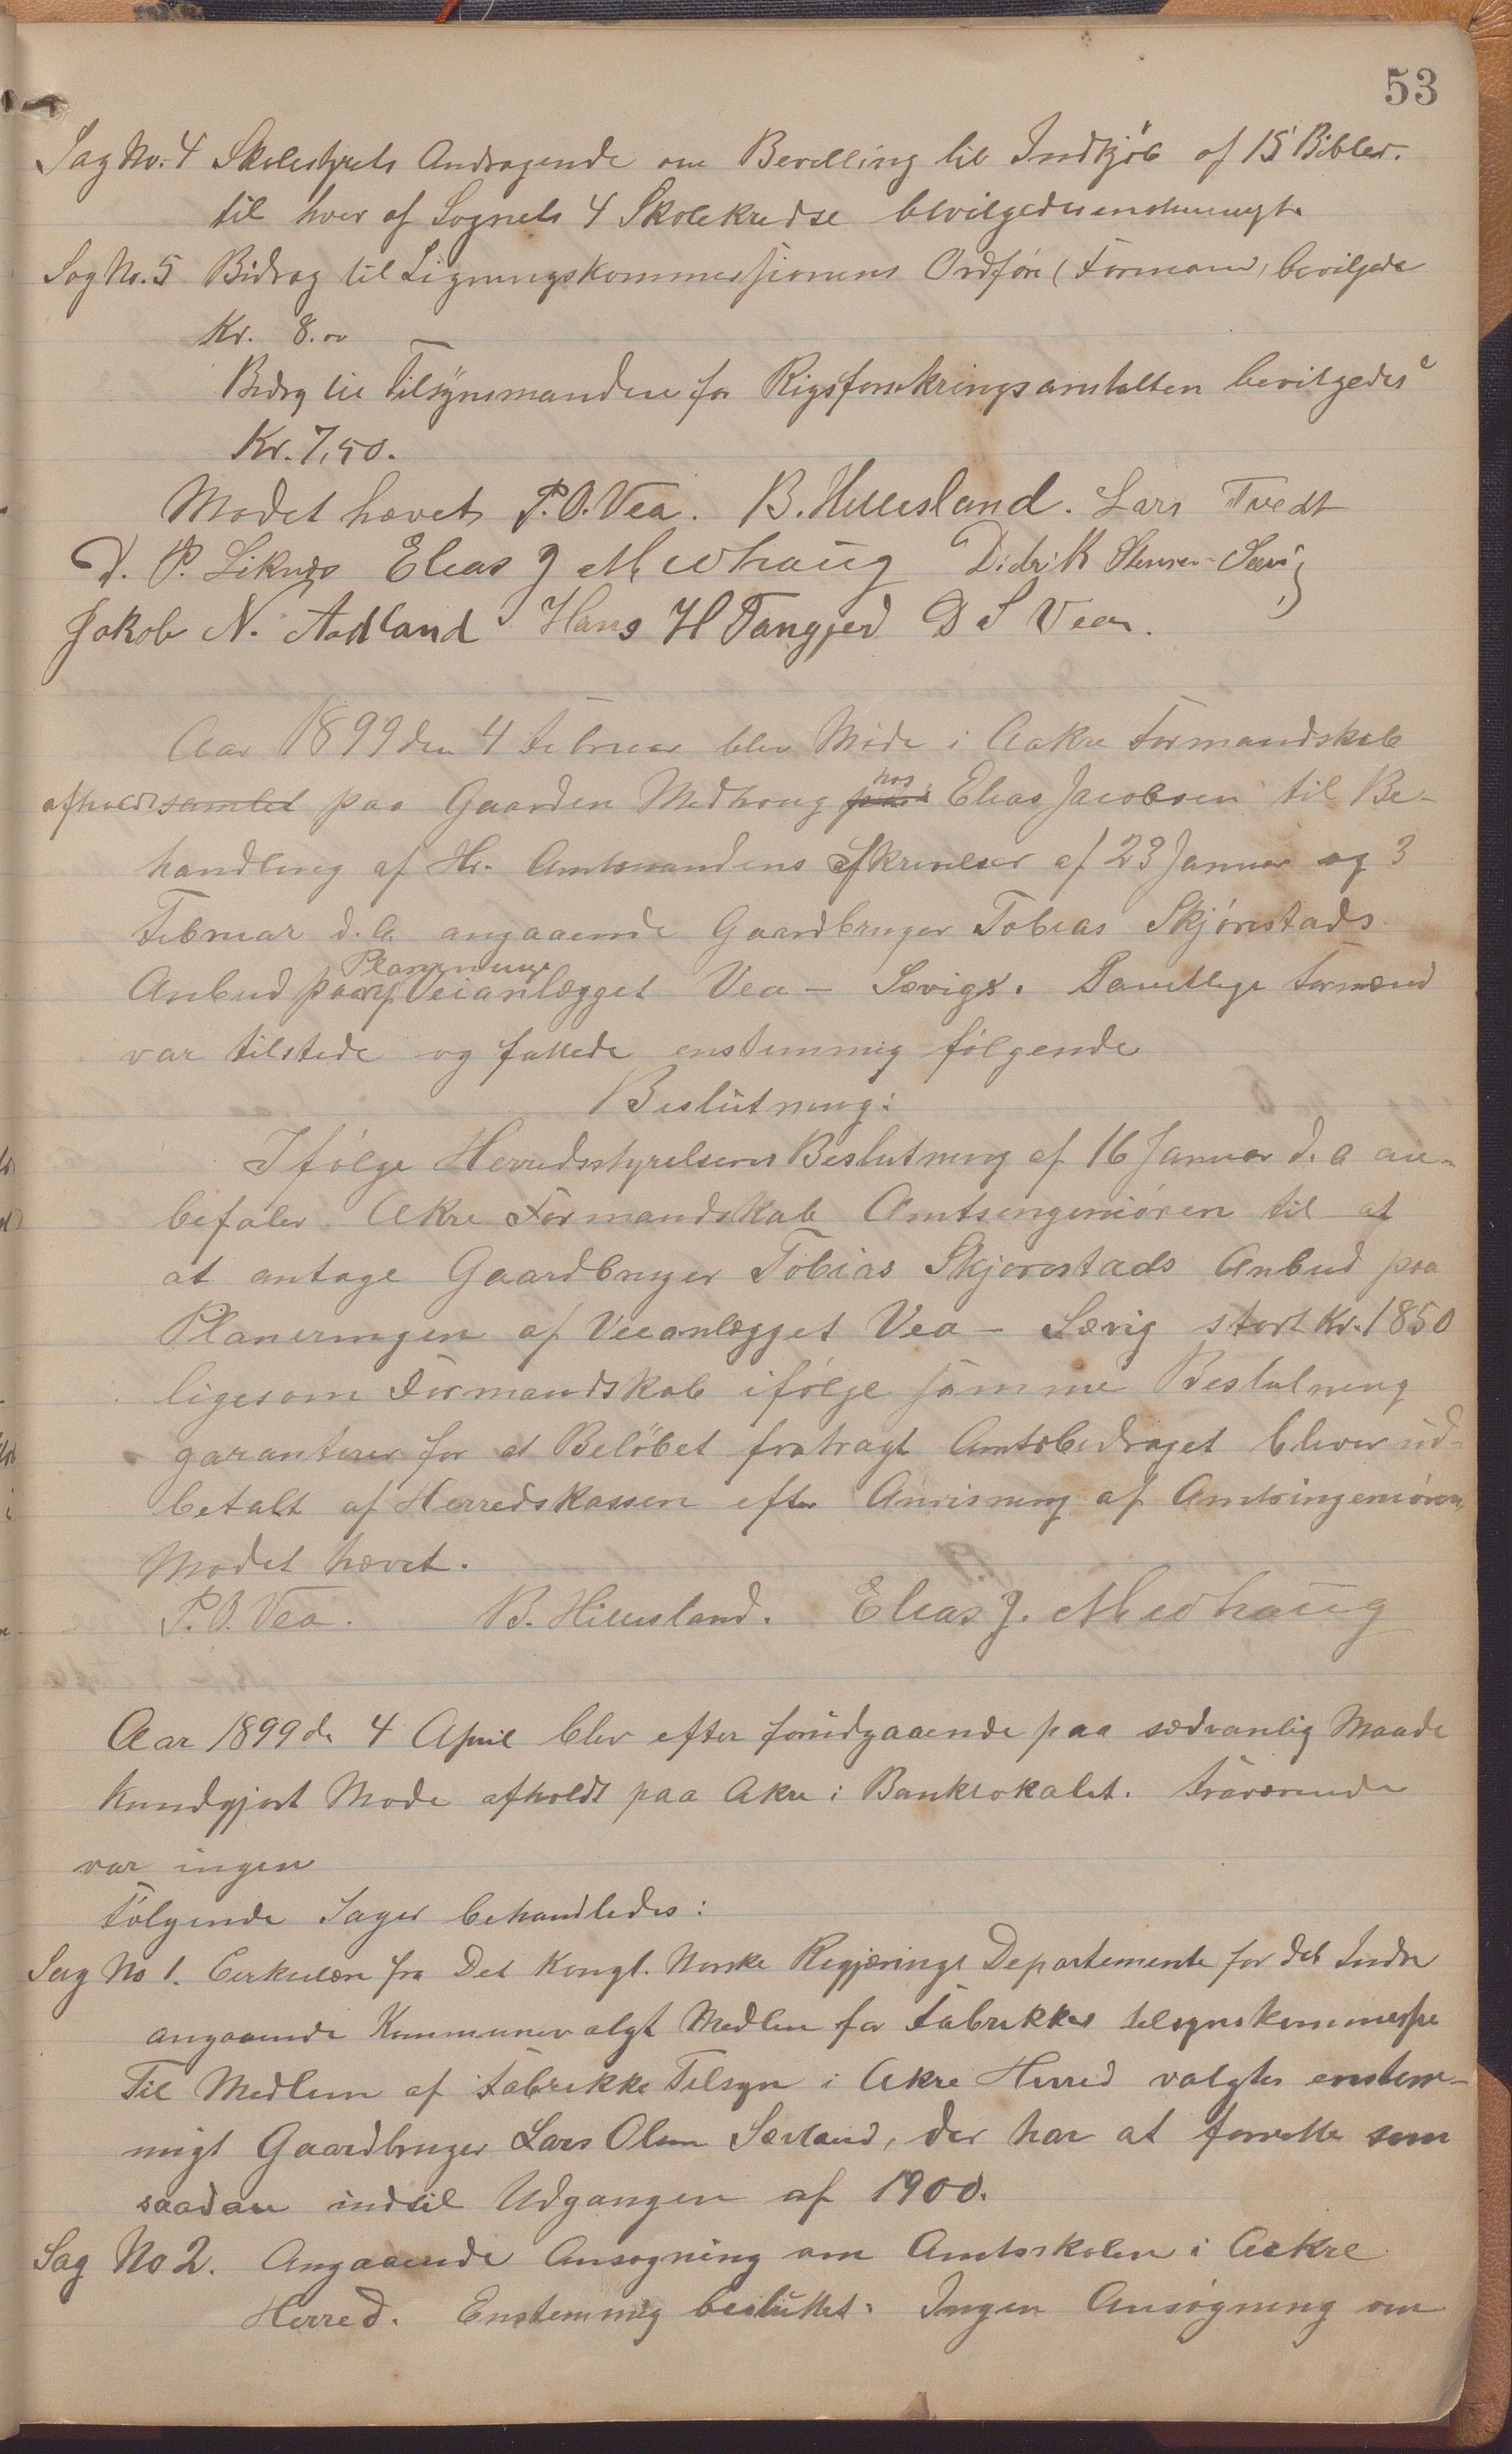 53
Sag No. 4 Skolestyrets Andragende om Bevilling til Indkjöb af 15 Bibler.
til hver af Sognets 4 Skolekredse bevilgedes enstemmigt.
Sag No. 5 Bidrag til Ligningskommissionens Ordför (Formand) bevilgede
Kr. 8.00
Bidrag til Tilsynsmanden for Rigsforsikringsanstalten bevilgedes
Kr. 7,50.
Mødet hævet P. O. Vea. B. Hillesland. Lars Tvedt
D. P. Liknes Elias J Medhaug Didrik Stensen Sævig
Jakob N. Aadland Hans H Tangjerd D S Vea.
Aar 1899 den 4 Februar blev Møde i Aakre Formandskab
afholdt samlet paa Gaarden Medhoug hos Elias Jacobsen til Be-
handling af Hr. Amtmandens Skrivelser af 23 Januar og 3
Februar d. A. angaaende Gaardbruger Tobias Skjörestads
Anbud paa Planeringe af Veianlægget Vea – Sævigs. Samtlige Formænd
var tilstede og fattede enstemmig fölgende
Beslutning:
Ifölge Herredsstyrelsens Beslutning af 16 Januar d. A an-
befaler Akre Formandskab Amtsingeniören til at
at antage Gaardbruger Tobias Skjørestads Anbud paa
Planeringen af Veianlægget Vea – Sævig stort Kr. 1850
ligesom Formandskab ifölge samme Beslutning
garanterer for at Belöbet fratragt Amtsbidraget bliver ud-
betalt af Herredskassen efter Anvisning af Amtsingeniören,
Mødet hævet.
P. O. Vea. B. Hillesland. Elias J. Medhaug
Aar 1899 de 4 April blev efter forudgaaende paa sædvanlig Maade
kundgjort Møde afholdt paa Akre i Banklokalet. Fraværende
var ingen
Fölgende Sager behandledes:
Sag No 1. Cirkulære fra Det Kongl. Norske Regjærings Departemente for det Indre
angaaende Kommunevalgt Medlem for Fabrikkes tilsynskommissie
Til Medlem af Fabrikke Tilsyn i Akre Herred valgtes enstem-
migt Gaardbruger Lars Olsen Sævland, der har at forrette som
saadan indtil Udgangen af 1900.
Sag No 2. Angaaende Ansøgning om Amtsskolen i Aakre
Herred. Enstemmig besluttet: Ingen Ansøgning om